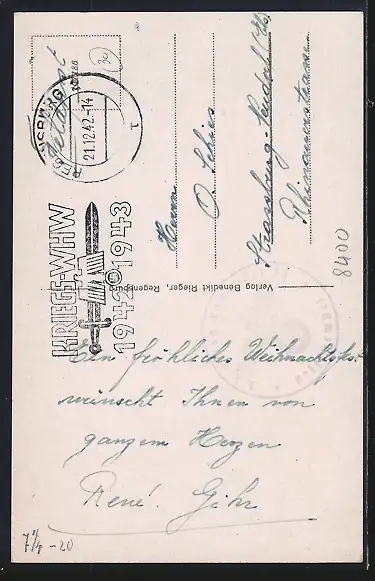 Feldpost
REGENSBURG
21.12.42.-14
1
KRIEGS-WHW
1942 1943
Herrn
O. Schies
Strassburg-Neudorf (Els)
Rheinauerstrasse
8400
Verlag Benedikt Rieger, Regensburg
Ein fröhliches Weihnachtsfest
wünscht Ihnen von
ganzem Herzen
René Gihr